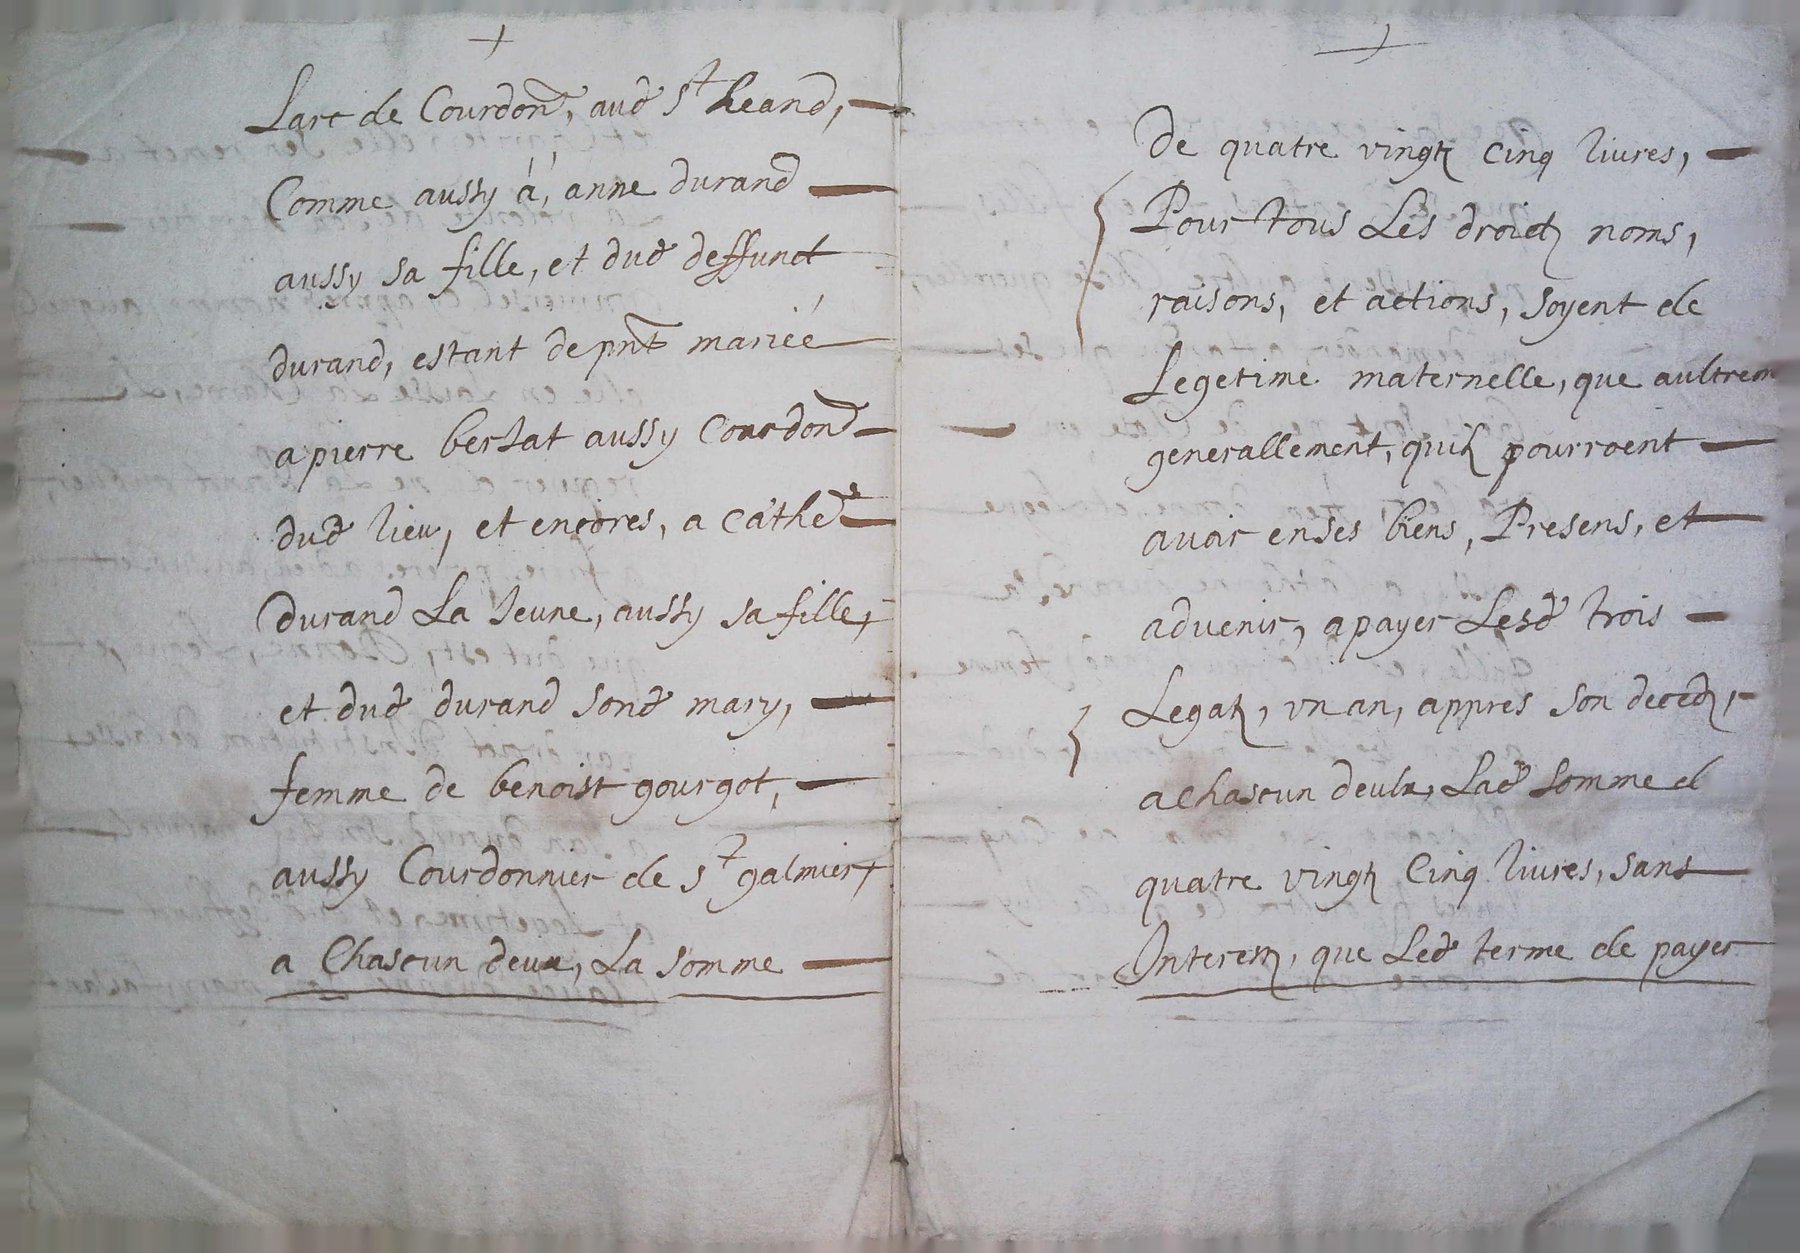 Larc de Courdonr, aud St heand,
Comme aussy á, anne durand
aussy sa fille, et dud deffunct
durand, estant de pnt mariéé
a pierre berlat aussy Courdonr
dud lieu, et encores, a cathe
durand La Jeune, aussy sa fille,
et dud durand Sond mary,
femme de benoist gourgot,
aussy Courdonnier de St galmier,
a Chascun deux, La Somme
De quatre vingtz Cinq livres,
Pour tous Les droictz noms,
raisons, et actions, soyent de
Legetime maternelle, que aultrem
generallement, quilz pourroent
avoir en ses biens, Presens, et
advenir, a payer Lesd trois
Legatz, un an, appres son decedz,
a Chascun deulx, Lad Somme d
quatre vingtz Cinq livres, sans
Interestz, que Led terme de payer